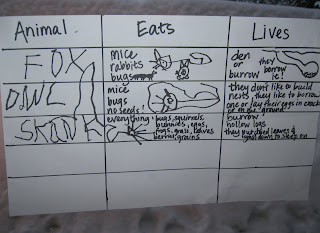 Animal Eats Lives
FOX
mice
rabbits
bugs
den
or
burrow
they
borrow
it!
OWL
mice
bugs
no seeds!
they don't like to build
nests, they like to borrow
one or lay their eggs in
or on the ground
SKUNK
everything: bugs, squirrels,
bunnies, eggs,
frogs, grass, leaves
berries, grains
burrow
hollow logs
they put dried leaves &
grass down to sleep on